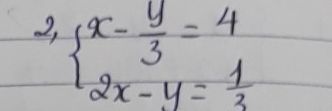 2, { x - y/3 = 4
2x - y = 1/3